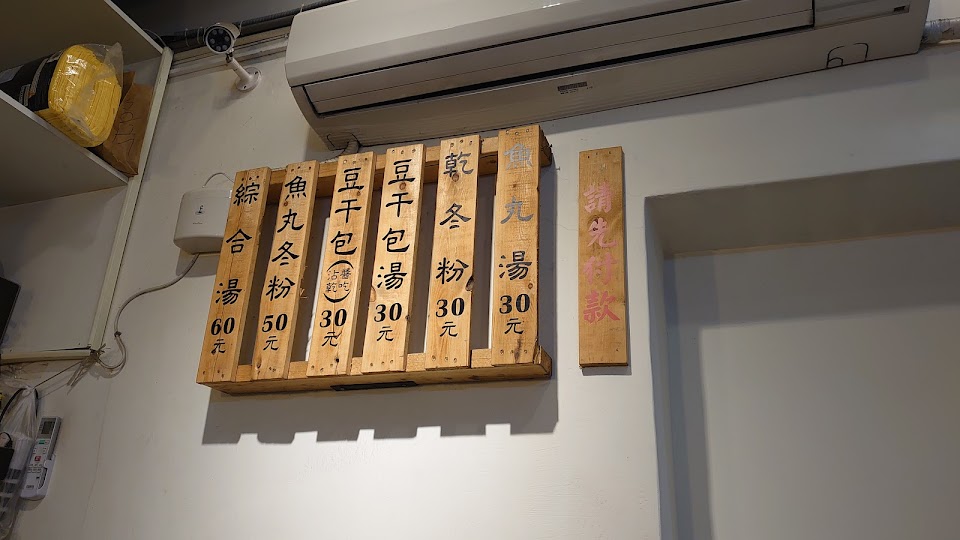 魚丸湯30元
乾冬粉30元
豆干包湯30元
豆干包(醬吃沾乾)30元
魚丸冬粉50元
綜合湯60元
請先付款